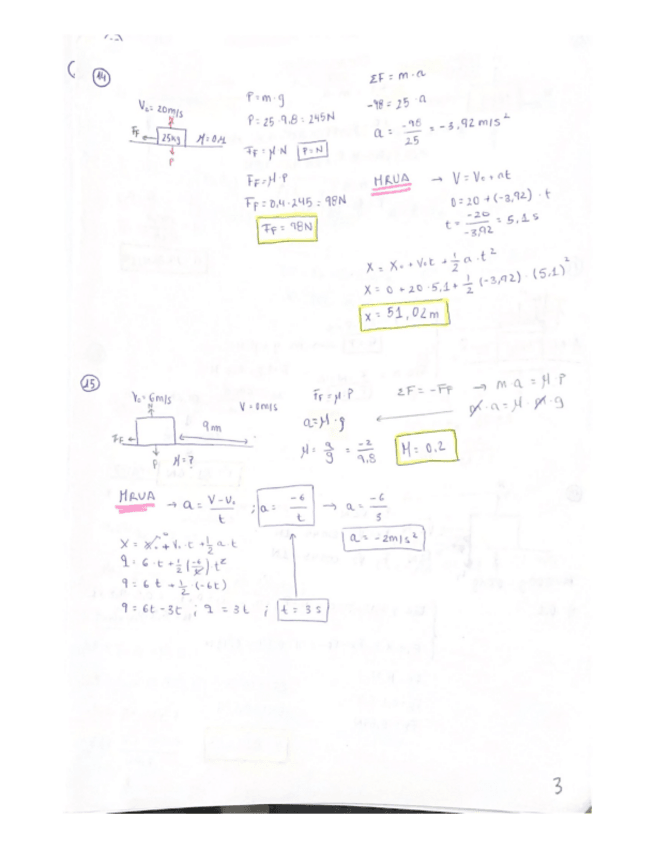 14
V₀ = 20m/s
N
F_F
25kg
M = 0,4
P
P = m · g
P = 25 · 9,8 = 245N
F_F = M N
P = N
F_F = M P
F_F = 0,4 · 245 = 98N
F_F = 98N
ΣF = m · a
-98 = 25 · a
a = -98/25 = -3,92 m/s²
MRUA → V = V₀ + at
0 = 20 + (-3,92) · t
t = -20/-3,92 = 5,1 s
X = X₀ + V₀t + 1/2 a · t²
X = 0 + 20 · 5,1 + 1/2 (-3,92) · (5,1)²
X = 51,02m
15
V₀ = 6m/s
V = 0m/s
N
F_F
9m
P
M = ?
F_F = M · P
a = M · g
M = a/g = -2/9,8
M = 0.2
ΣF = -F_F → m a = M · P
m · a = M · m · g
MRUA → a = V - V₀/t ; a = -6/t → a = -6/3
a = -2m/s²
X = X₀ + V₀ · t + 1/2 a t
9 = 6 · t + 1/2 (-6/t) t²
9 = 6t + 1/2 (-6t)
9 = 6t - 3t ; 9 = 3t ; t = 3s
3